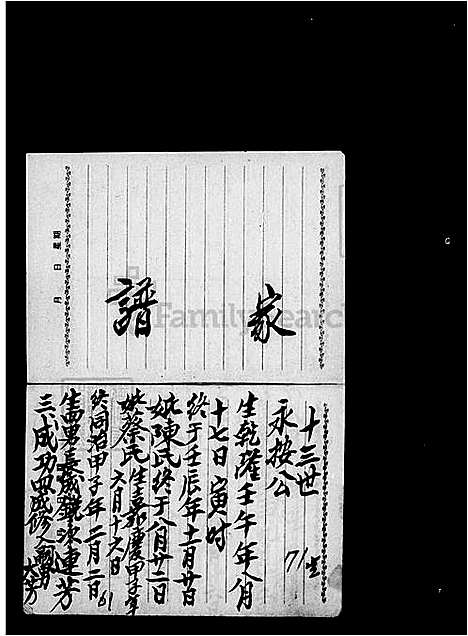 家譜
月 日 星期
FamilySearch
十三世
永按公
71生
生乾隆壬午年八月
十七日寅时
终于壬辰年十二月廿日
妣陳氏终于八月廿二日
妣蔡氏生嘉慶甲子年
六月十六日
终同治甲子年二月二日
61
生四男長成鏡次連芳
三成功四成修